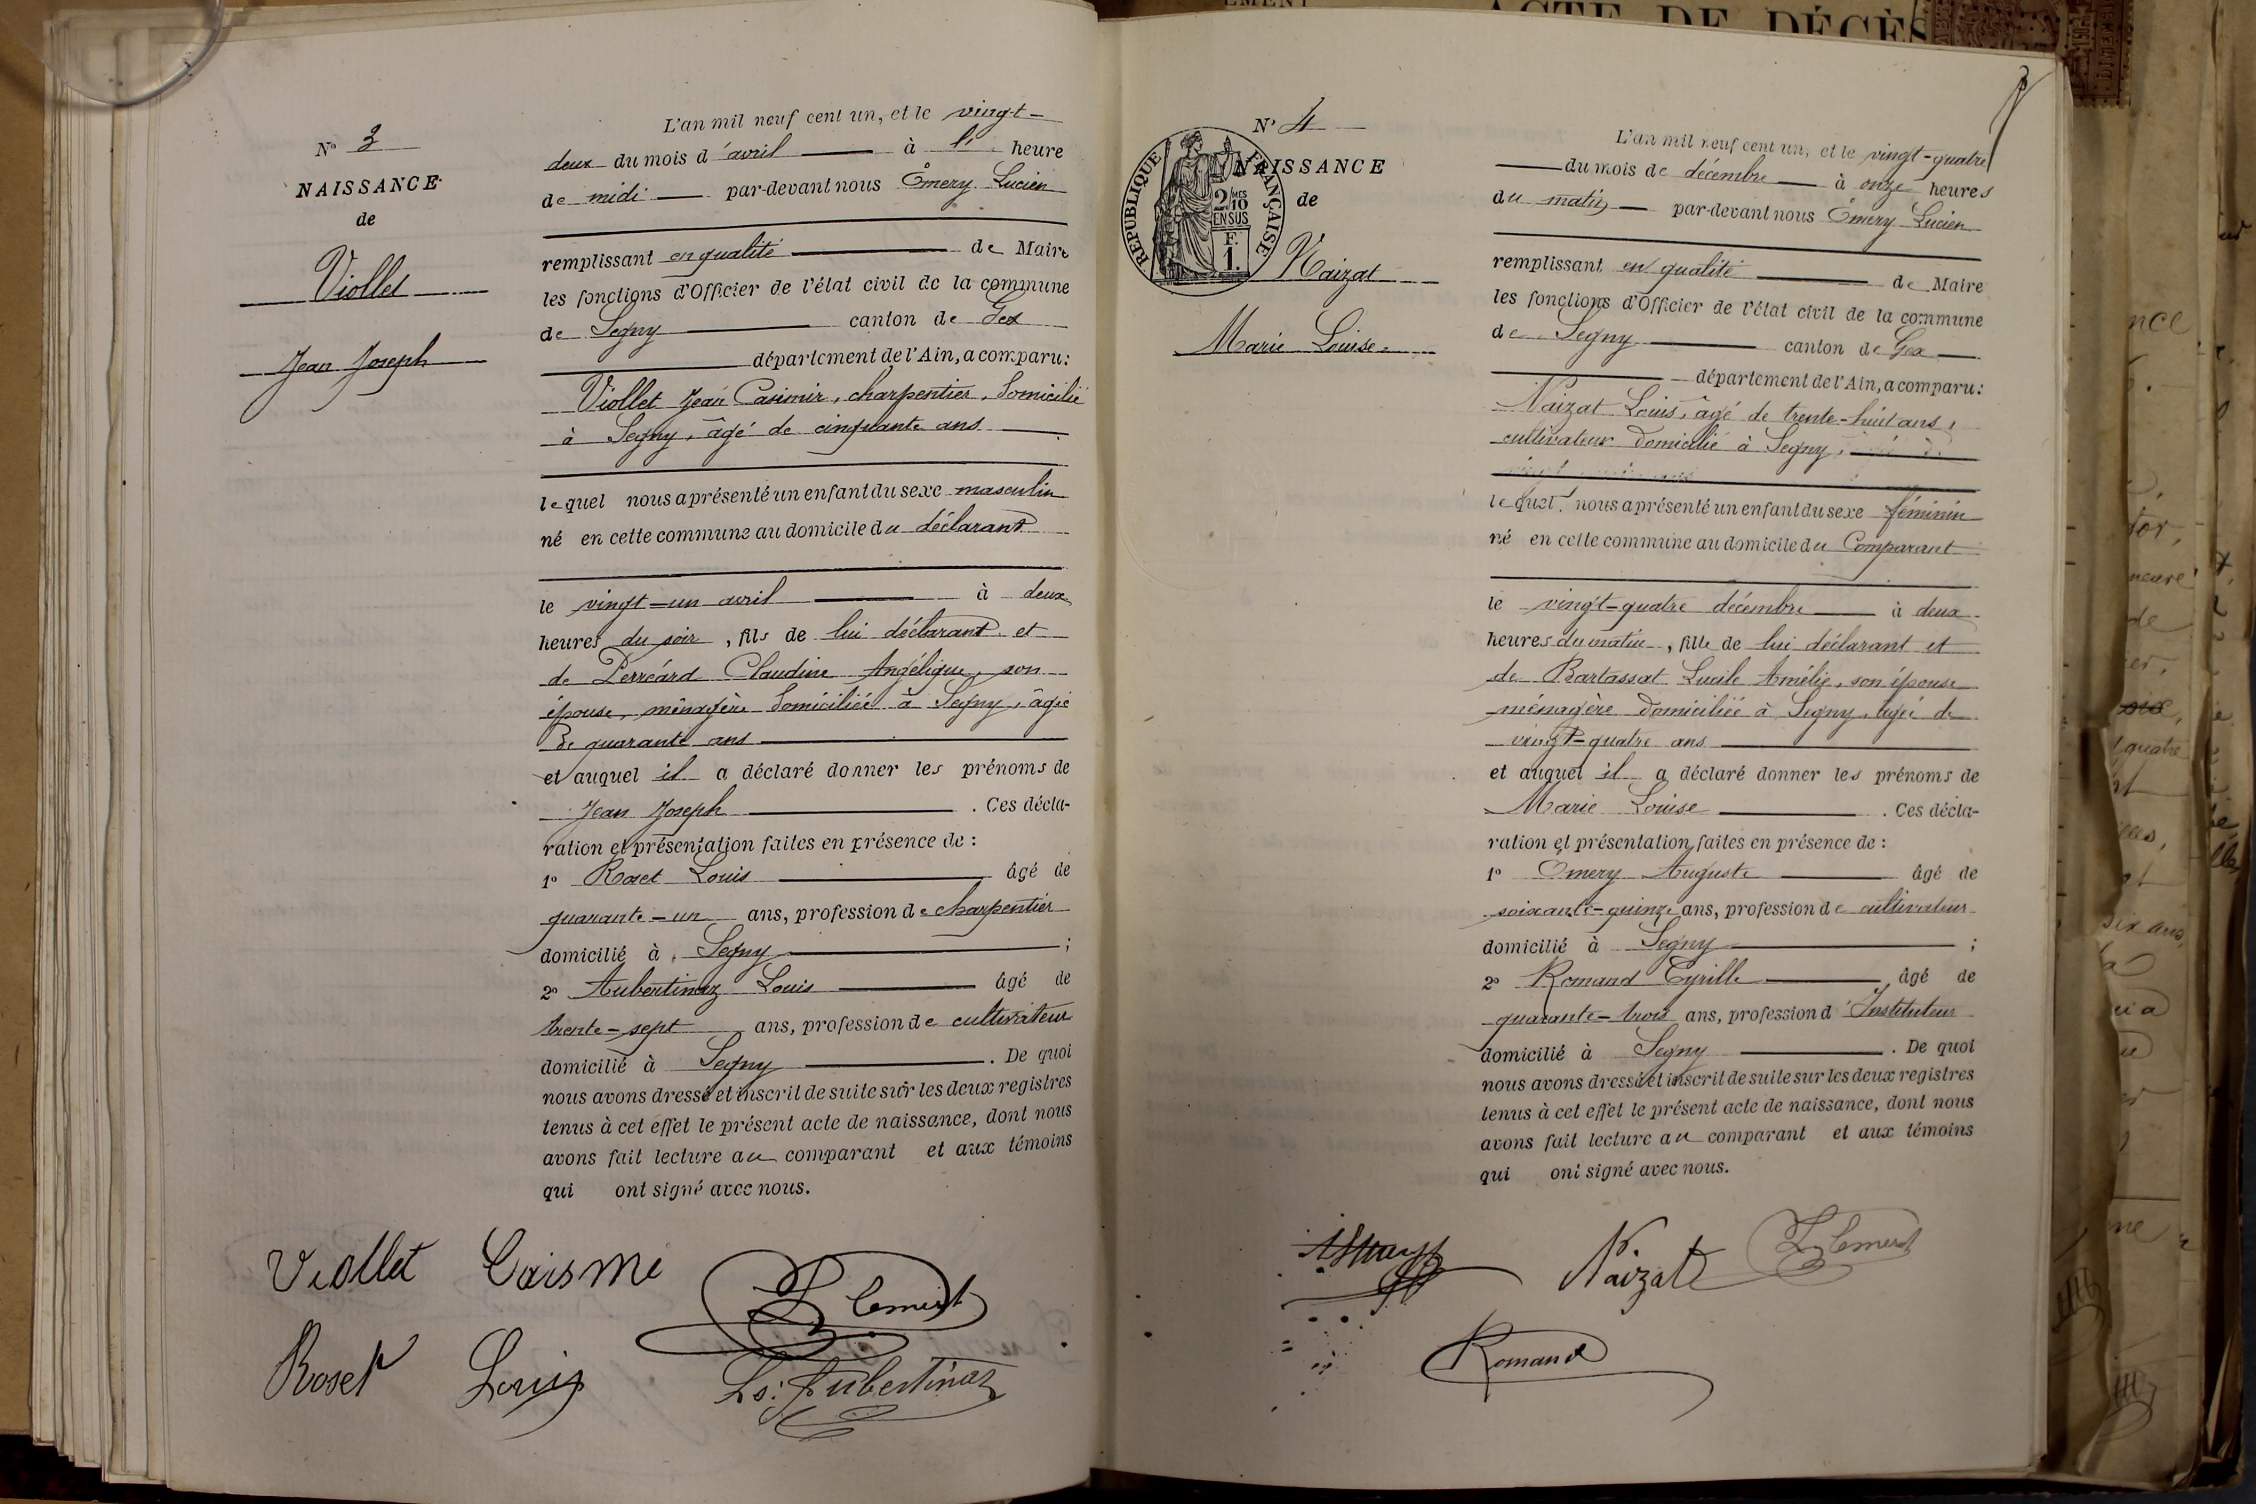 N° 3
NAISSANCE
de
Viollet
Jean Joseph
L'an mil neuf cent un, et le vingt-
deux du mois d'avril à l' heure
de midi par-devant nous Émery Lucien
remplissant en qualité de Maire
les fonctions d'Officier de l'état civil de la commune
de Segny canton de Gex
département de l'Ain, a comparu:
Viollet Jean Casimir, charpentier, domicilié
à Segny, âgé de cinquante ans
lequel nous a présenté un enfant du sexe masculin
né en cette commune au domicile du déclarant
le vingt-un avril à deux
heures du soir, fils de lui déclarant et
de Perréard Claudine Angélique, son
épouse, ménagère domiciliée à Segny, âgée
de quarante ans
et auquel il a déclaré donner les prénoms de
Jean Joseph. Ces décla-
ration et présentation faites en présence de:
1° Roset Louis âgé de
quarante-un ans, profession de charpentier
domicilié à Segny;
2° Aubertinaz Louis âgé de
trente-sept ans, profession de cultivateur
domicilié à Segny. De quoi
nous avons dressé et inscrit de suite sur les deux registres
tenus à cet effet le présent acte de naissance, dont nous
avons fait lecture au comparant et aux témoins
qui ont signé avec nous.
Viollet Caisme
L Emery
Roset Louis
Ls: Aubertinaz
EMENT
ACTE DE DÉCÈS
N° 4
REPUBLIQUE FRANÇAISE
2 MES
/10
EN SUS
F.
1.
NAISSANCE
de
Naizat
Marie Louise
L'an mil neuf cent un, et le vingt-quatre
du mois de décembre à onze heures
du matin par-devant nous Émery Lucien
remplissant en qualité de Maire
les fonctions d'Officier de l'état civil de la commune
de Segny canton de Gex
département de l'Ain, a comparu:
Naizat Louis, âgé de trente-huit ans,
cultivateur domicilié à Segny,
lequel nous a présenté un enfant du sexe féminin
né en cette commune au domicile du Comparant
le vingt-quatre décembre à deux
heures du matin, fille de lui déclarant et
de Bartassat Lucile Amélie, son épouse
ménagère domiciliée à Segny, âgée de
vingt-quatre ans
et auquel il a déclaré donner les prénoms de
Marie Louise. Ces décla-
ration et présentation faites en présence de:
1° Émery Auguste âgé de
soixante-quinze ans, profession de cultivateur
domicilié à Segny;
2° Romand Cyrille âgé de
quarante-trois ans, profession d'Instituteur
domicilié à Segny. De quoi
nous avons dressé et inscrit de suite sur les deux registres
tenus à cet effet le présent acte de naissance, dont nous
avons fait lecture au comparant et aux témoins
qui ont signé avec nous.
Naizat
L Emery
Romand